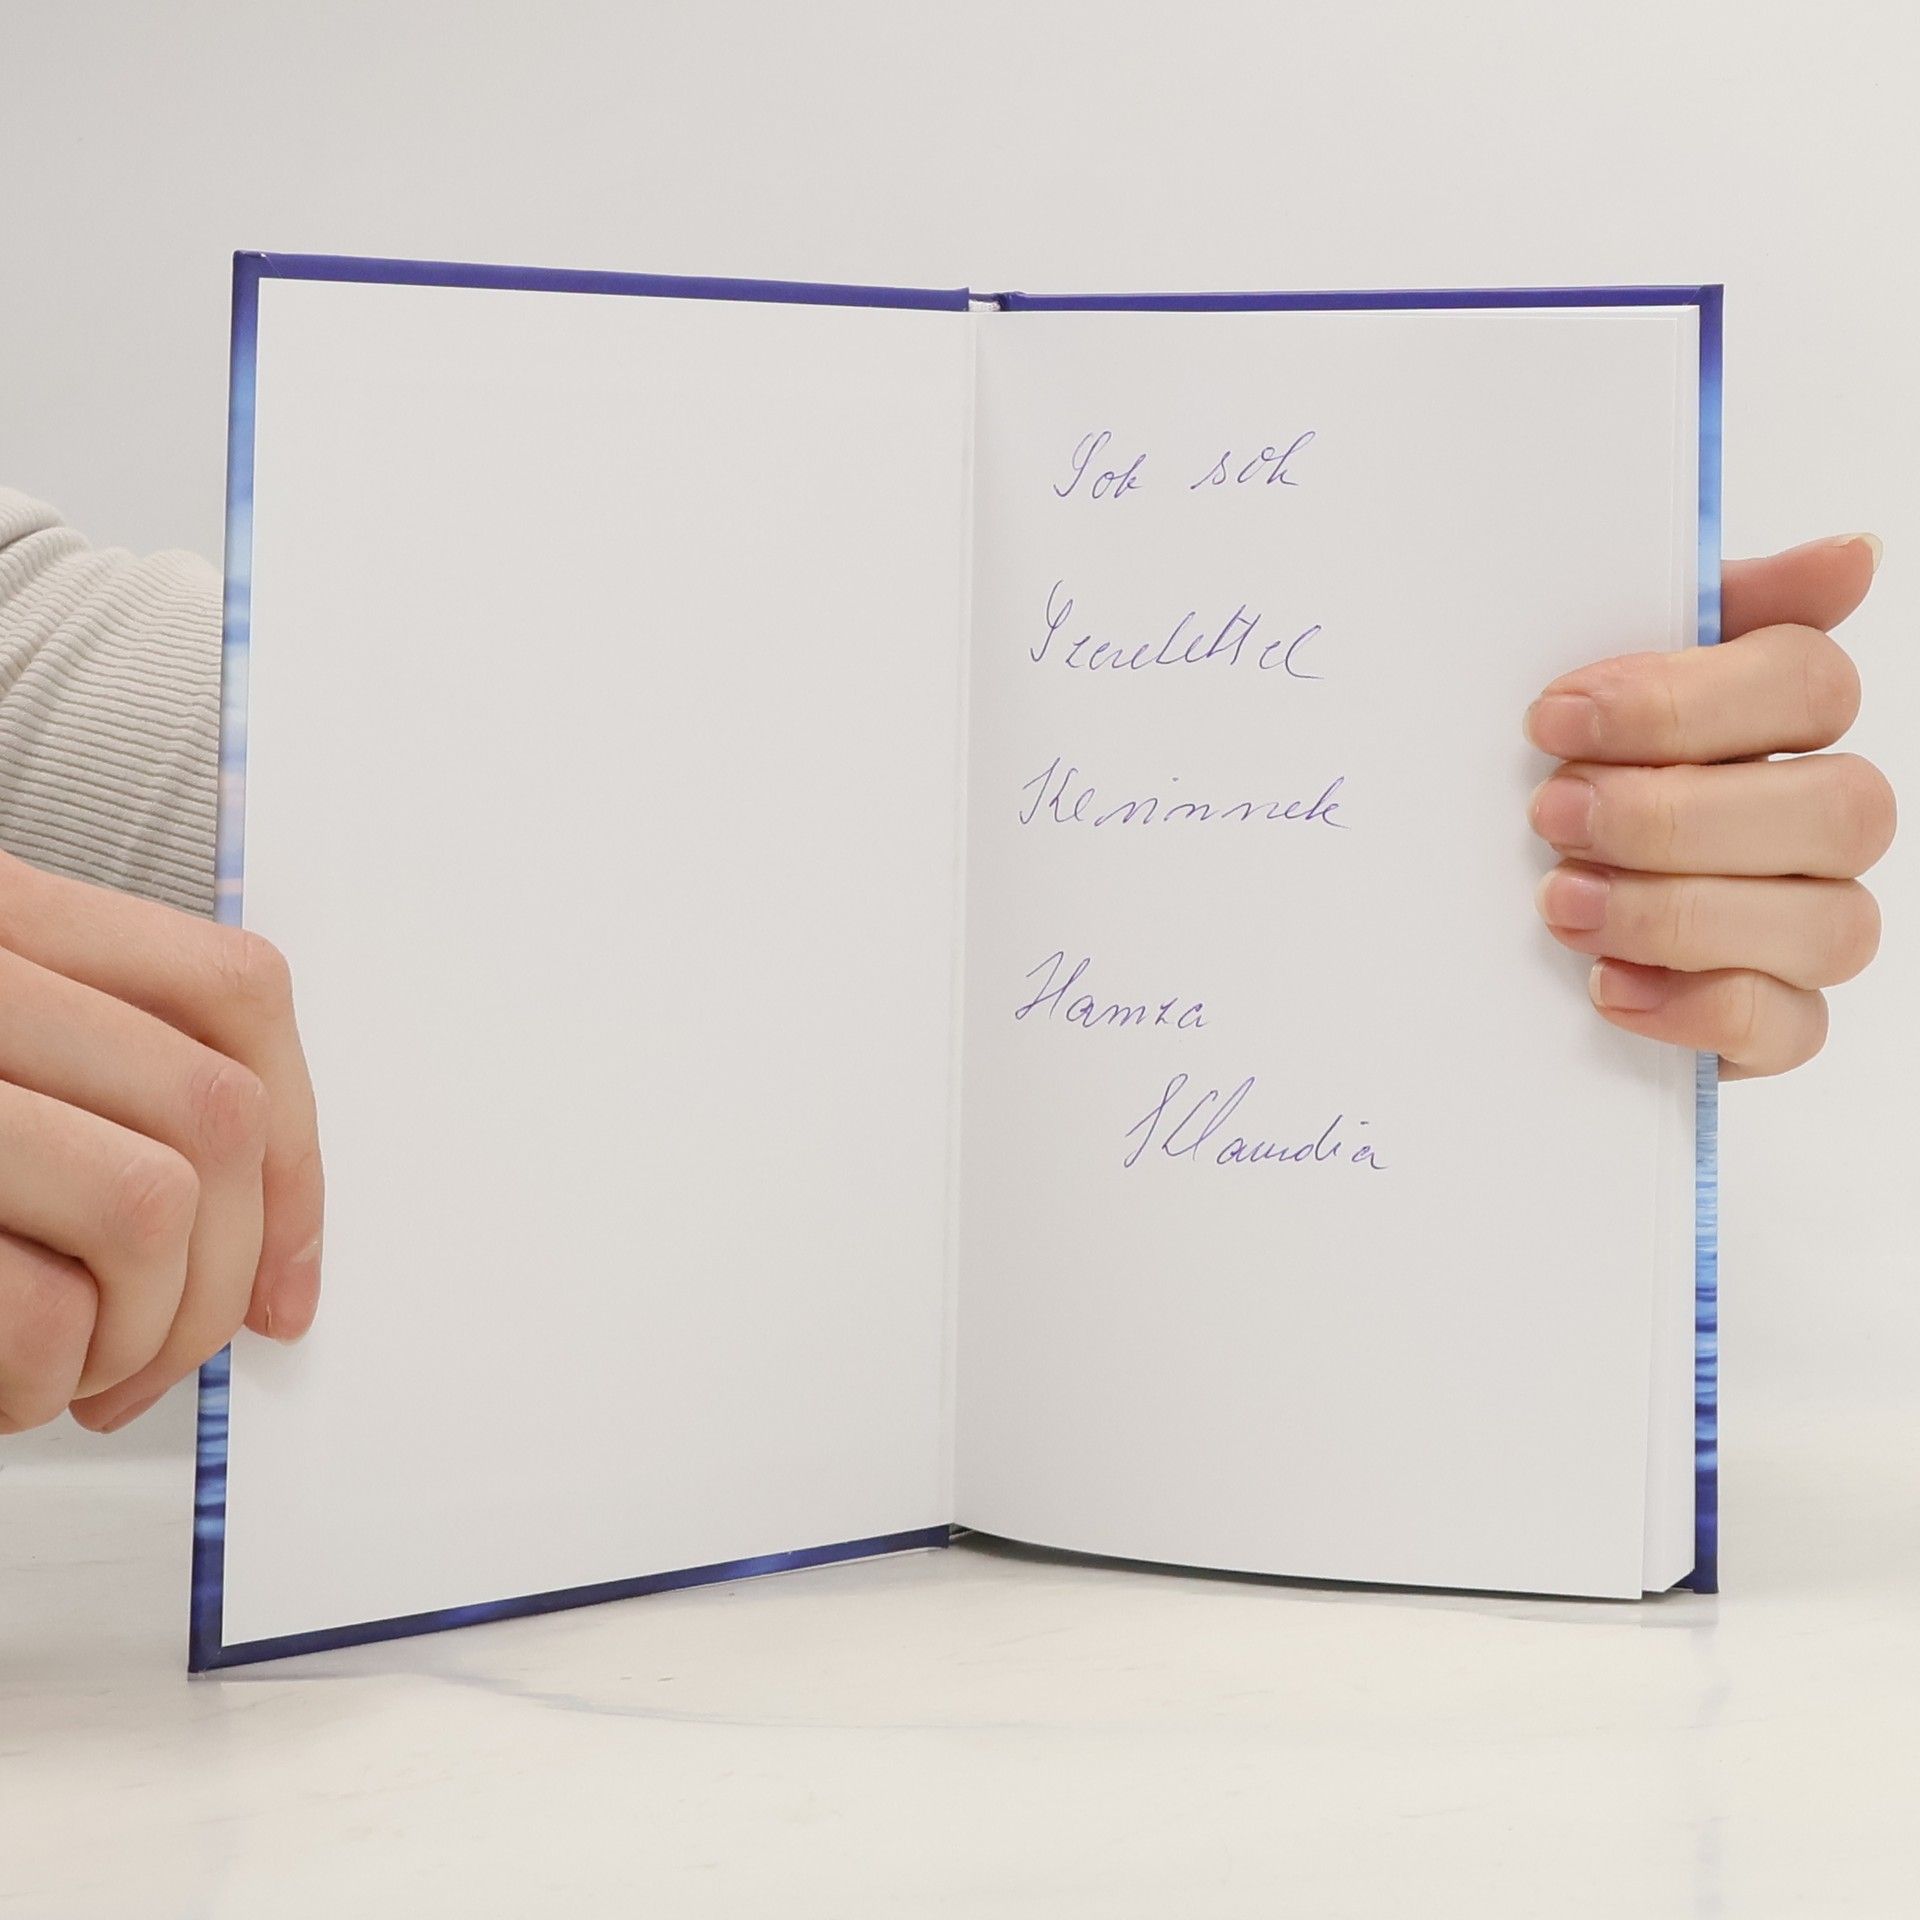 Sok sok
Szeretettel
Kevinnek
Hamza
Klaudia